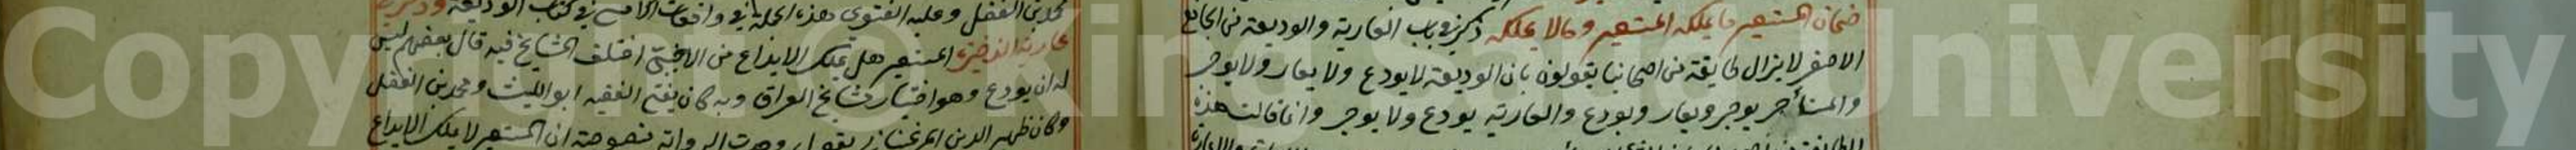 ضمان المستعير ما يملكه المستعير وما لا يملكه ذكر في باب العارية والوديعة من الجامع
الاصغر لا يزال طايفة من اصحابنا يقولون بان الوديعة لا يودع ولا يعار ولا يوجر
والمستأجر يوجر ويعار ويودع والعارية يودع ولا يوجر وانما قالت هذه
محمد بن الفضل وعليه الفتوى هذه الجملة في واقعات في كتاب الوديعة
المستعير هل يملك الايداع من الاجنبي اختلف المشايخ فيه قال بعضهم ليس
له ان يودع وهو اختيار مشايخ العراق وبه كان يفتي الفقيه ابو الليث ومحمد بن الفضل
وكان ظهير الدين المرغيناني يقول وجدت الرواية منصوصة ان المستعير لا يملك الايداع
Copyright © King University